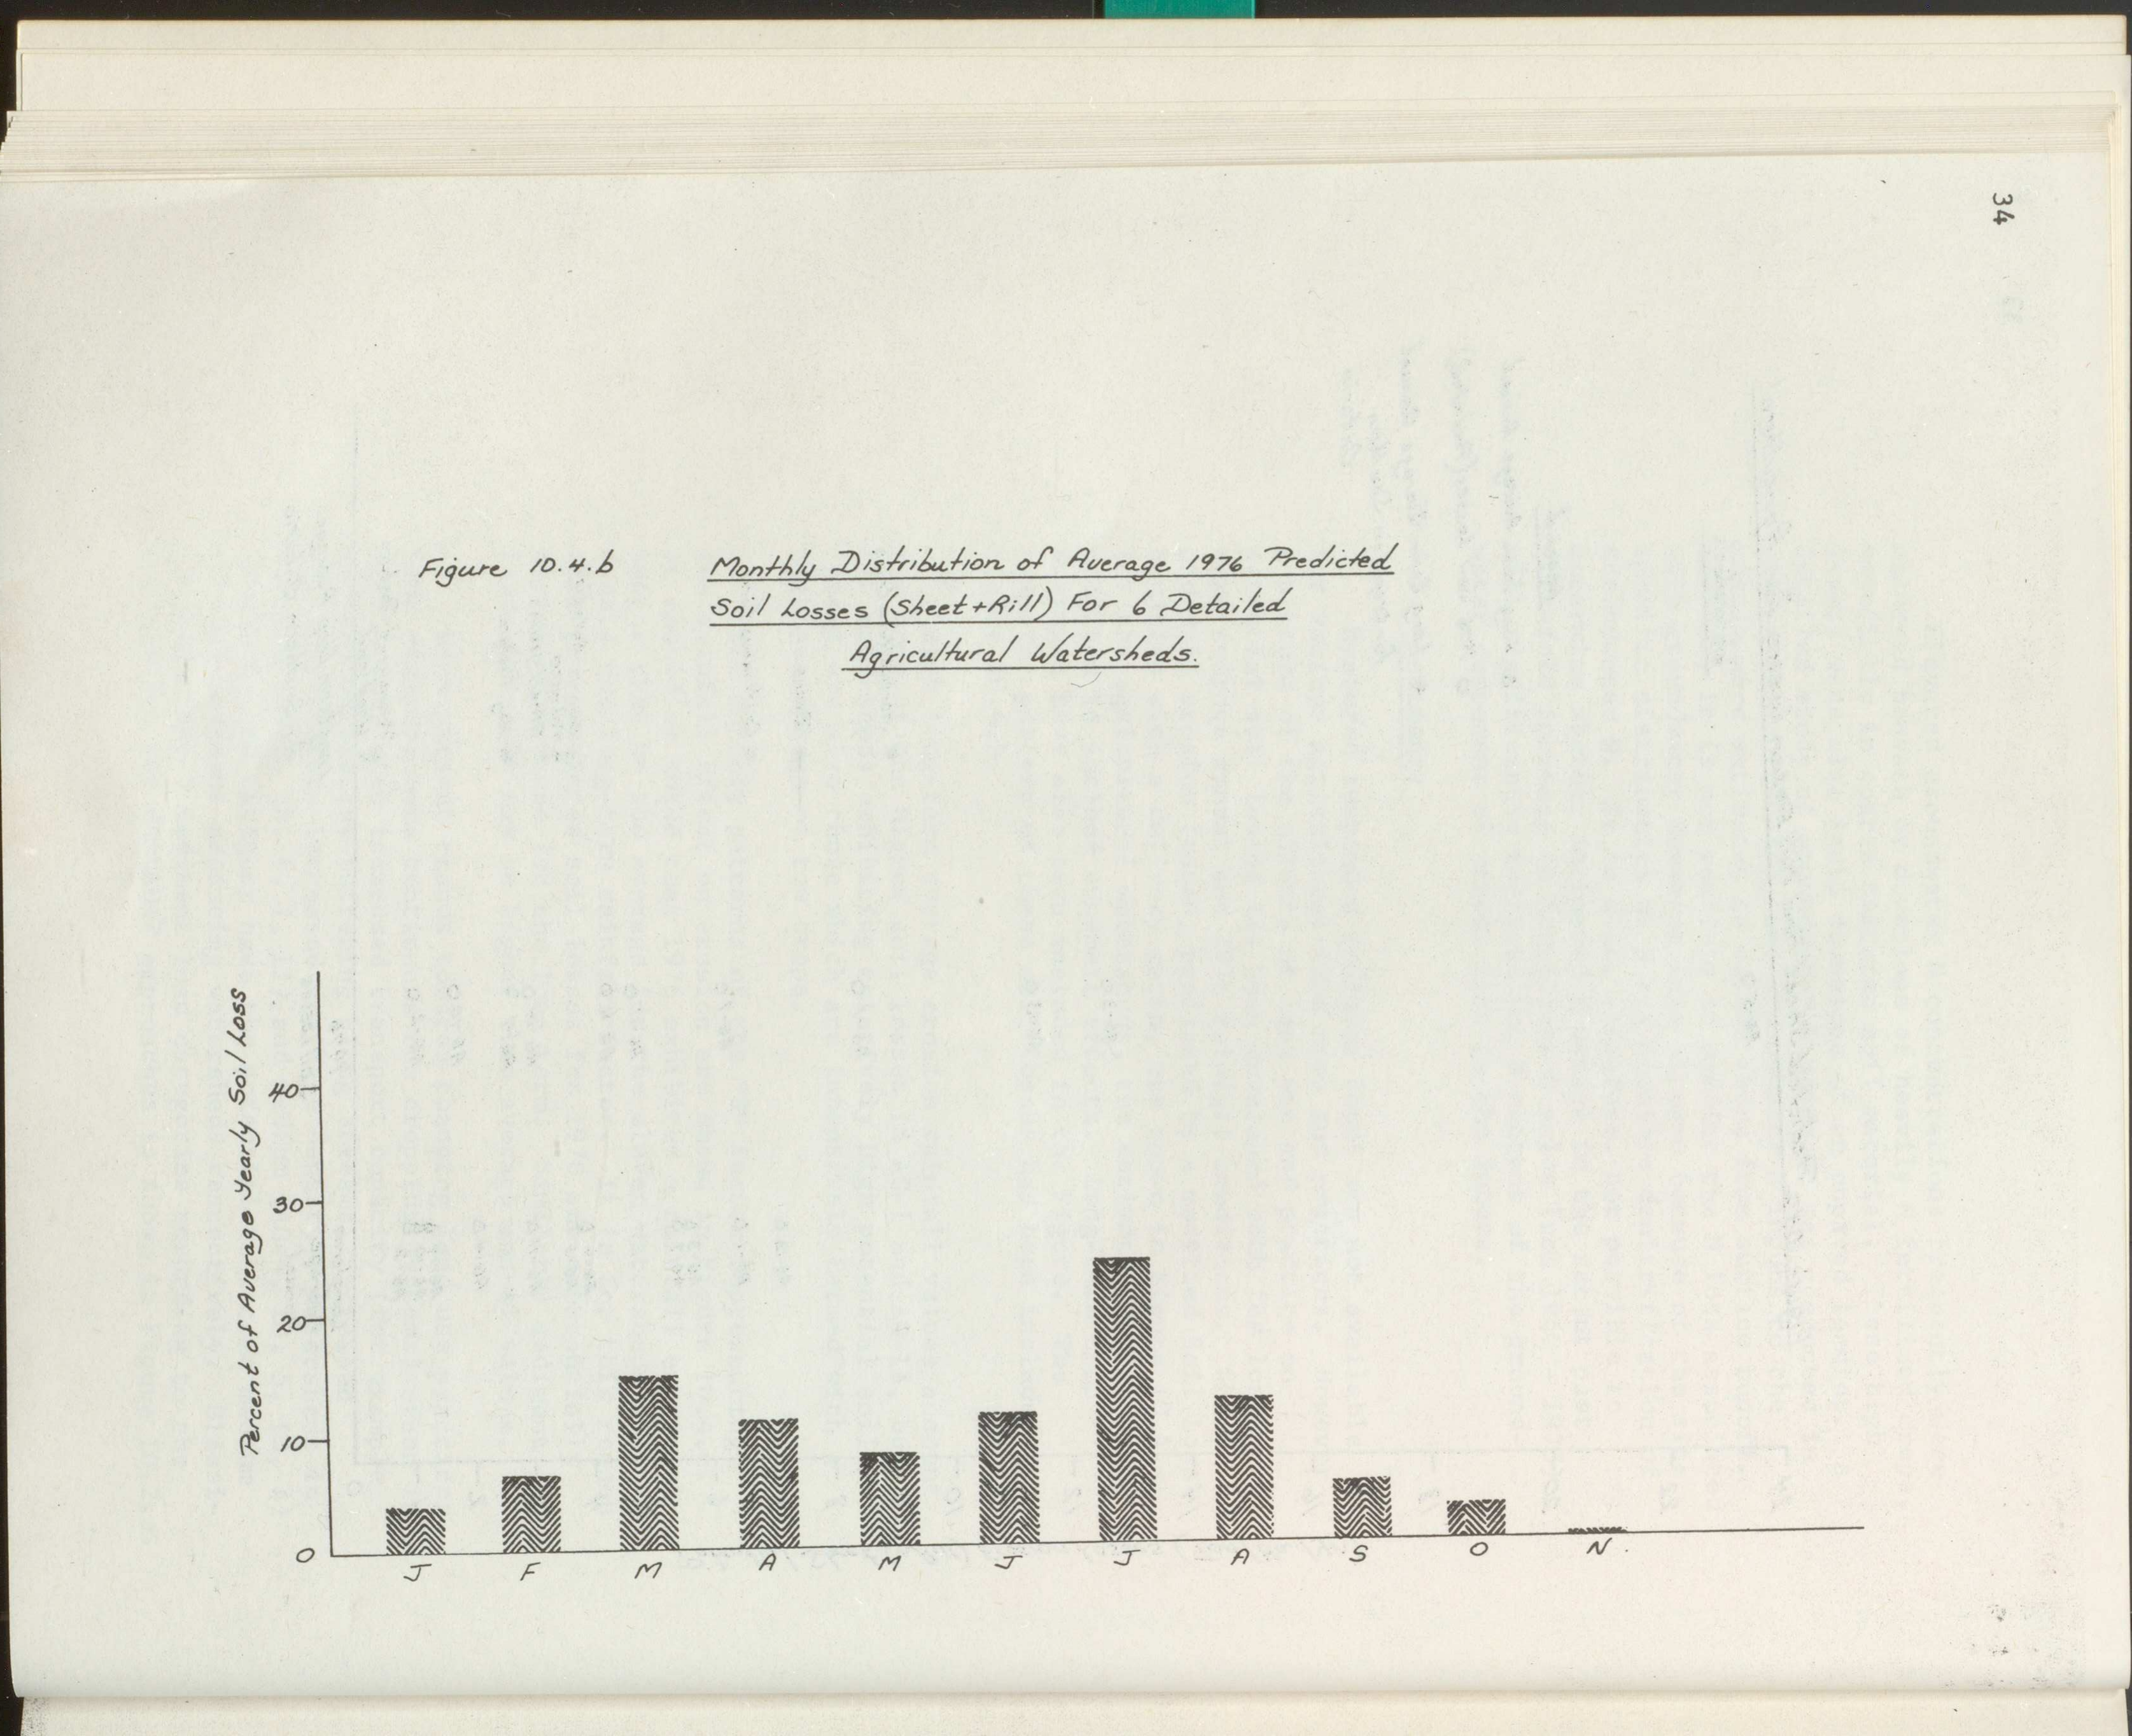 34
Figure 10.4.b
Monthly Distribution of Average 1976 Predicted
Soil Losses (Sheet+Rill) For 6 Detailed
Agricultural Watersheds.
Percent of Average Yearly Soil Loss
40
30
20
10
0
J F M A M J J A S O N